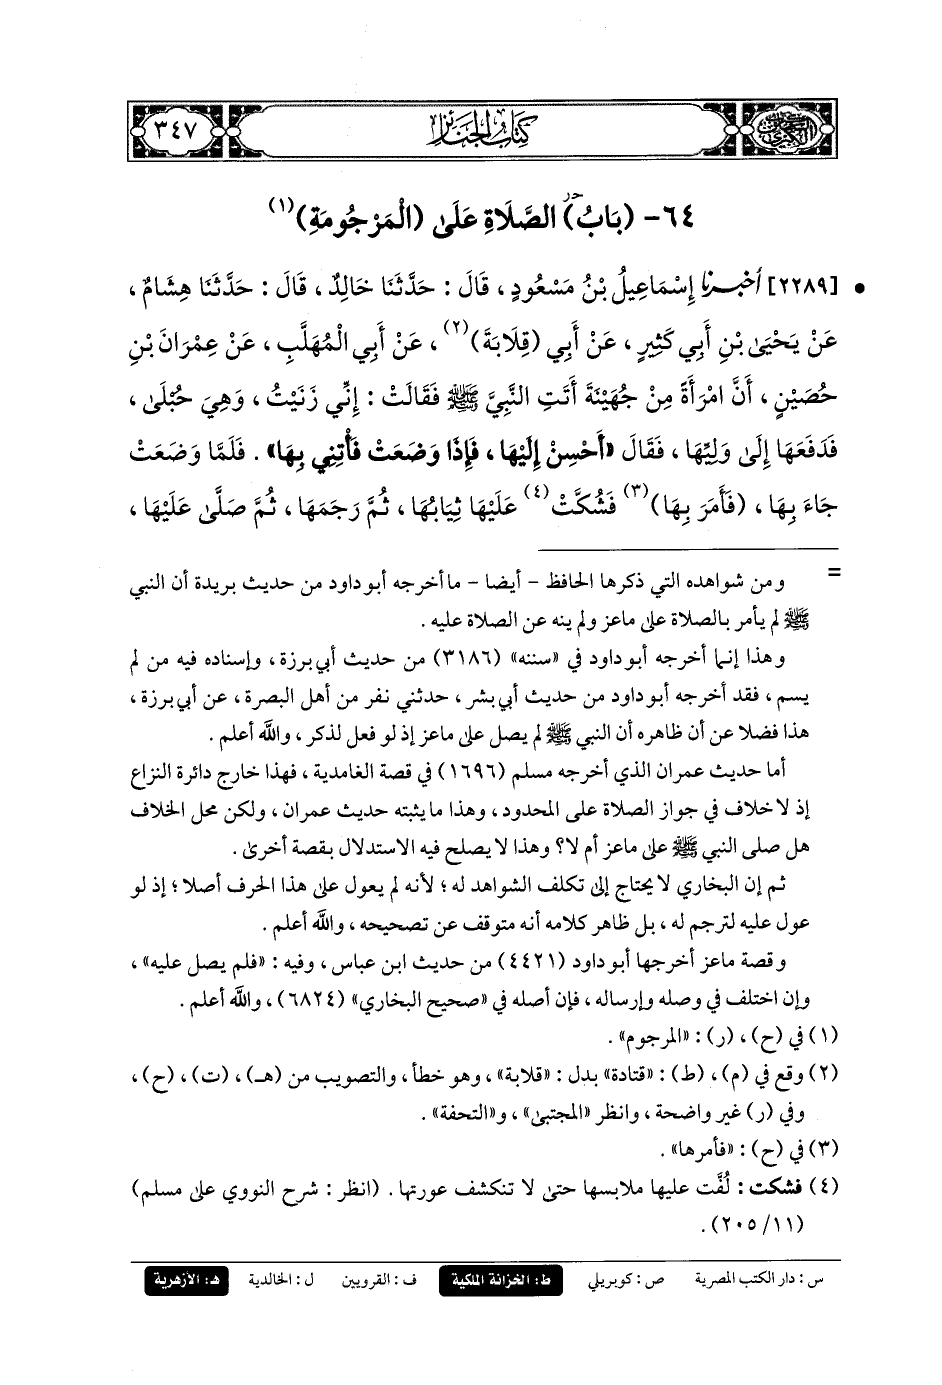 كتاب الجنائز
٣٤٧
٦٤- (بَابُ) الصَّلَاةِ عَلَى (الْمَرْجُومَةِ)(١)
• [٢٢٨٩] أخبرنا إِسْمَاعِيلُ بْنُ مَسْعُودٍ ، قَالَ : حَدَّثَنَا خَالِدٌ ، قَالَ : حَدَّثَنَا هِشَامٌ ،
عَنْ يَحْيَىٰ بْنِ أَبِي كَثِيرٍ ، عَنْ أَبِي (قِلَابَةَ)(٢) ، عَنْ أَبِي الْمُهَلَّبِ ، عَنْ عِمْرَانَ بْنِ
حُصَيْنٍ ، أَنَّ امْرَأَةً مِنْ جُهَيْنَةَ أَتَتِ النَّبِيَّ ﷺ فَقَالَتْ : إِنِّي زَنَيْتُ ، وَهِيَ حُبْلَىٰ ،
فَدَفَعَهَا إِلَىٰ وَلِيِّهَا ، فَقَالَ «أَحْسِنْ إِلَيْهَا ، فَإِذَا وَضَعَتْ فَأْتِنِي بِهَا» . فَلَمَّا وَضَعَتْ
جَاءَ بِهَا ، (فَأَمَرَ بِهَا)(٣) فَشُكَّتْ(٤) عَلَيْهَا ثِيَابُهَا ، ثُمَّ رَجَمَهَا ، ثُمَّ صَلَّىٰ عَلَيْهَا ،
= ومن شواهده التي ذكرها الحافظ - أيضا - ما أخرجه أبو داود من حديث بريدة أن النبي
ﷺ لم يأمر بالصلاة على ماعز ولم ينه عن الصلاة عليه .
وهذا إنما أخرجه أبو داود في «سننه» (٣١٨٦) من حديث أبي برزة ، وإسناده فيه من لم
يسم ، فقد أخرجه أبو داود من حديث أبي بشر ، حدثني نفر من أهل البصرة ، عن أبي برزة ،
هذا فضلا عن أن ظاهره أن النبي ﷺ لم يصل على ماعز إذ لو فعل لذكر ، والله أعلم .
أما حديث عمران الذي أخرجه مسلم (١٦٩٦) في قصة الغامدية ، فهذا خارج دائرة النزاع
إذ لا خلاف في جواز الصلاة على المحدود ، وهذا ما يثبته حديث عمران ، ولكن محل الخلاف
هل صلى النبي ﷺ على ماعز أم لا؟ وهذا لا يصلح فيه الاستدلال بقصة أخرى .
ثم إن البخاري لا يحتاج إلى تكلف الشواهد له ؛ لأنه لم يعول على هذا الحرف أصلا ؛ إذ لو
عول عليه لترجم له ، بل ظاهر كلامه أنه متوقف عن تصحيحه ، والله أعلم .
وقصة ماعز أخرجها أبو داود (٤٤٢١) من حديث ابن عباس ، وفيه : «فلم يصل عليه» ،
وإن اختلف في وصله وإرساله ، فإن أصله في «صحيح البخاري» (٦٨٢٤) ، والله أعلم .
(١) في (ح) ، (ر) : «المرجوم» .
(٢) وقع في (م) ، (ط) : «قتادة» بدل : «قلابة» ، وهو خطأ ، والتصويب من (هـ) ، (ت) ، (ح) ،
وفي (ر) غير واضحة ، وانظر «المجتبى» ، و«التحفة» .
(٣) في (ح) : «فأمرها» .
(٤) فشكت : لُفَّت عليها ملابسها حتى لا تنكشف عورتها . (انظر : شرح النووي على مسلم)
(١١/ ٢٠٥) .
س : دار الكتب المصرية ص : كوبريلي ط : الخزانة الملكية ف : القرويين ل : الخالدية هـ : الأزهرية